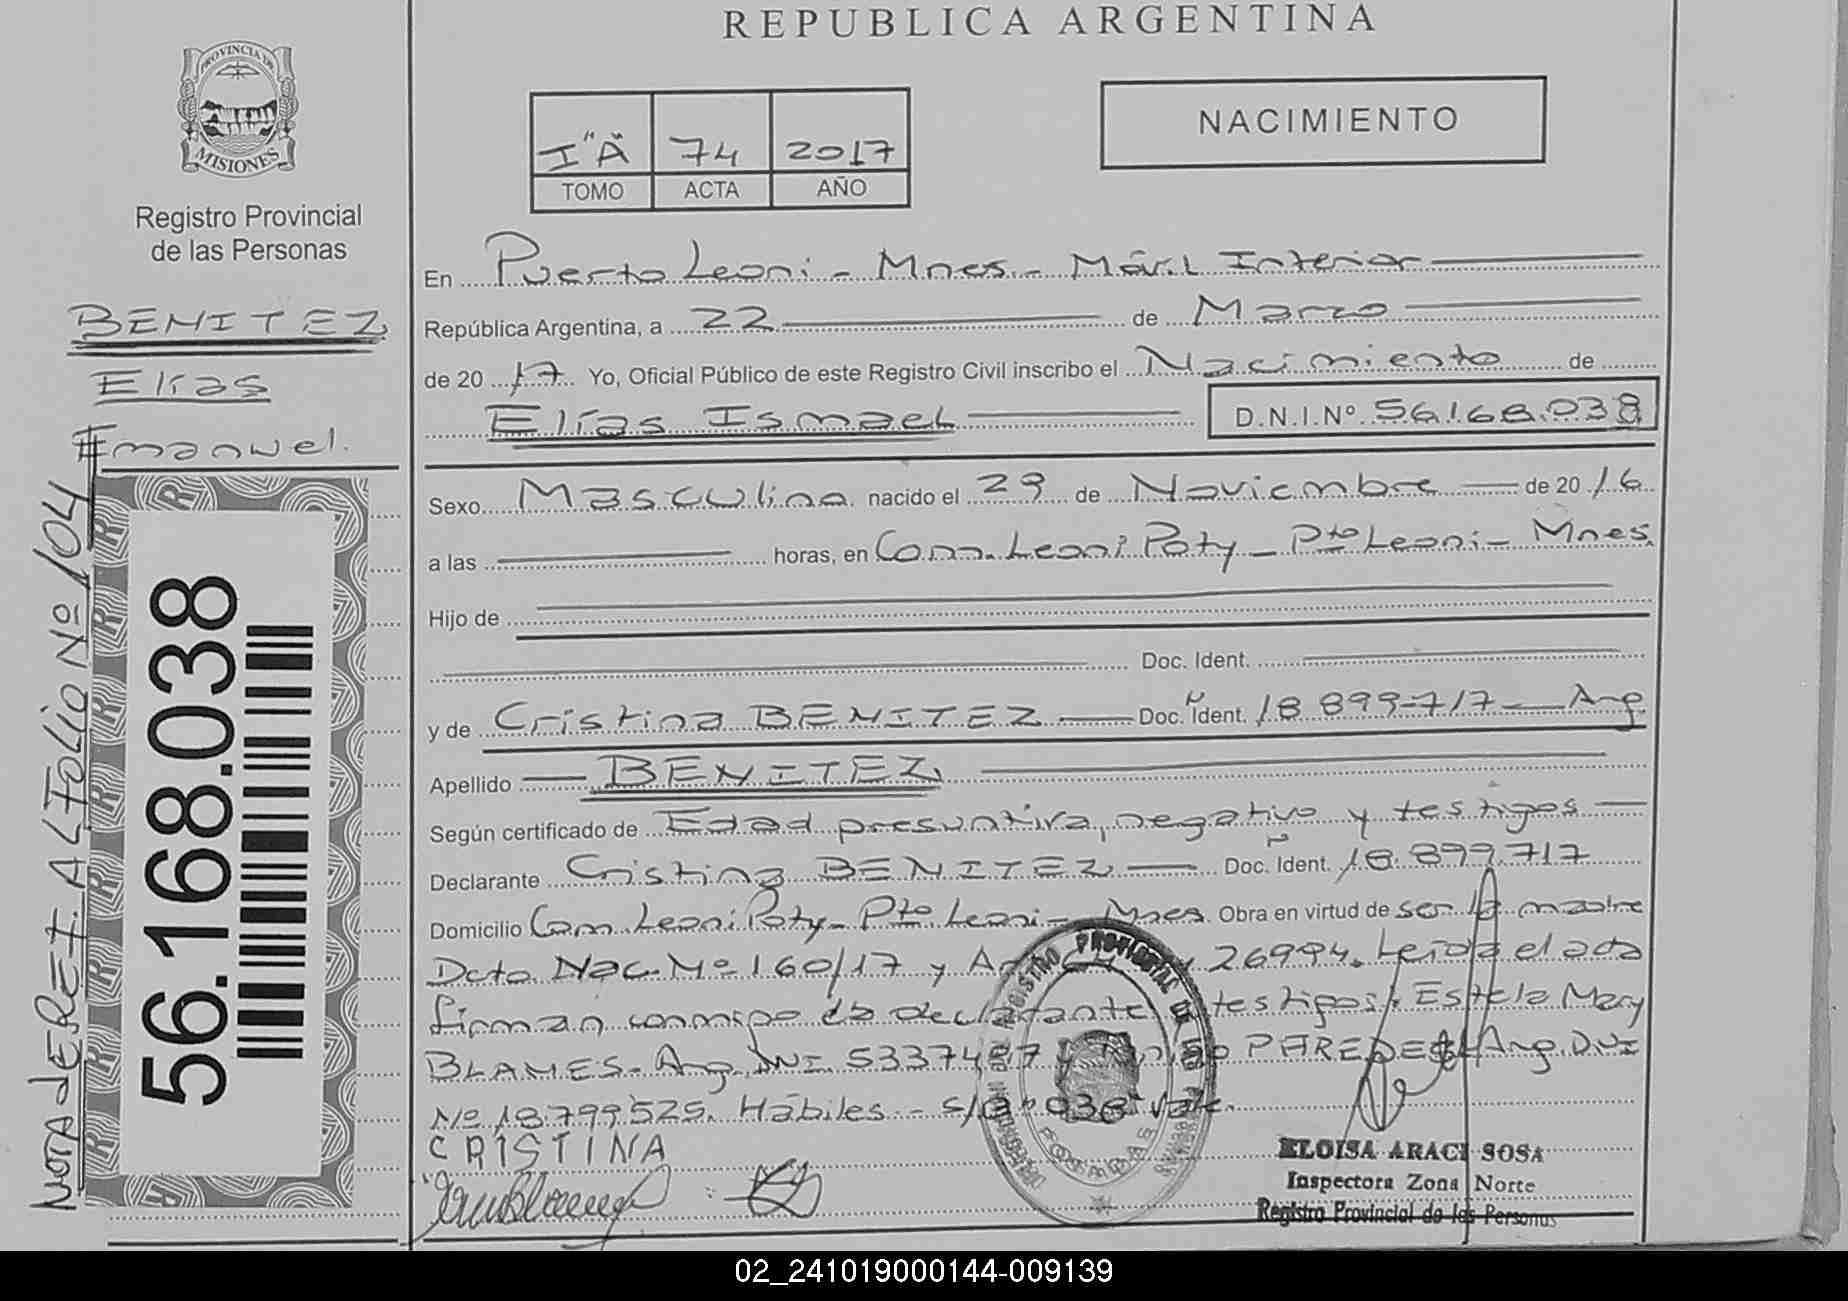 REPUBLICA ARGENTINA
PROVINCIA DE
MISIONES
Registro Provincial
de las Personas
I "A" 74 2017
TOMO ACTA AÑO
NACIMIENTO
BENITEZ
Elías
Emanuel.
NOTA de REF. AL Folio Nº 104
56.168.038
En Puerto Leoni - Mnes - Móvil Interior
República Argentina, a 22 de Marzo
de 20 17 Yo, Oficial Público de este Registro Civil inscribo el Nacimiento de
Elías Ismael D.N.I.Nº 56.168.038
Sexo Masculino nacido el 29 de Noviembre de 20 16
a las horas, en Com. Leoni Poty - Pto Leoni - Mnes.
Hijo de
Doc. Ident.
y de Cristina BENITEZ Doc. Ident. 18 899-717 Arg.
Apellido BENITEZ
Según certificado de Edad presuntiva, negativo y testigos
Declarante Cristina BENITEZ Doc. Ident. 18.899.717
Domicilio Com. Leoni Poty - Pto Leoni - Mnes. Obra en virtud de ser la madre
Dcto Nac. Nº 160/17 y 26994. Leída el acta
firman conmigo la declarante testigos: Estela Mary
BLAMES - Arg. DNI 5337487 PAREDES Arg. DNI
Nº 18.799525. Hábiles - vale.
CRISTINA
POSADAS
ELOISA ARACI SOSA
Inspectora Zona Norte
Registro Provincial de las Personas
02_241019000144-009139